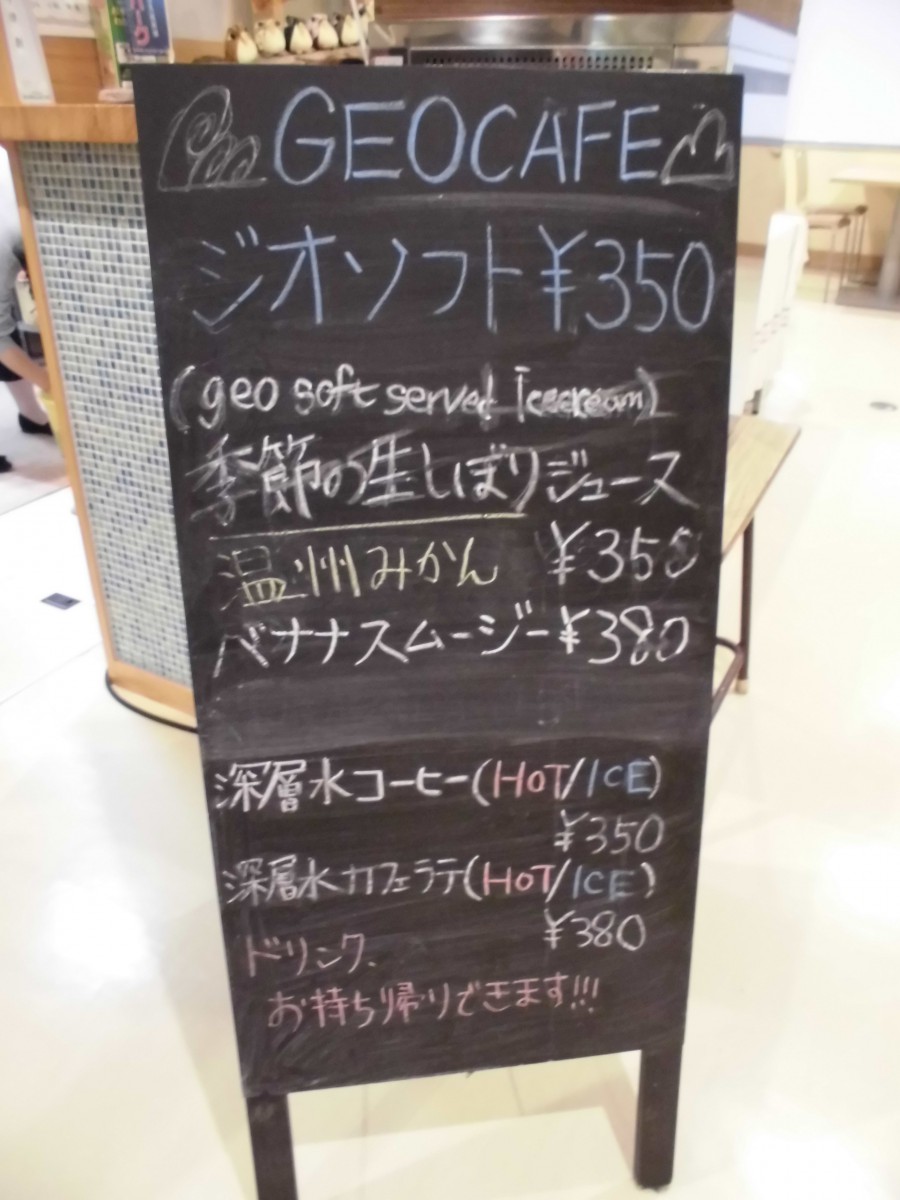 GEOCAFE
ジオソフト ¥350
(geo soft served Icecream)
季節の生しぼりジュース
温州みかん ¥350
バナナスムージー ¥380
深層水コーヒー(HOT/ICE)
¥350
深層水カフェラテ(HOT/ICE)
¥380
ドリンク、
お持ち帰りできます!!!